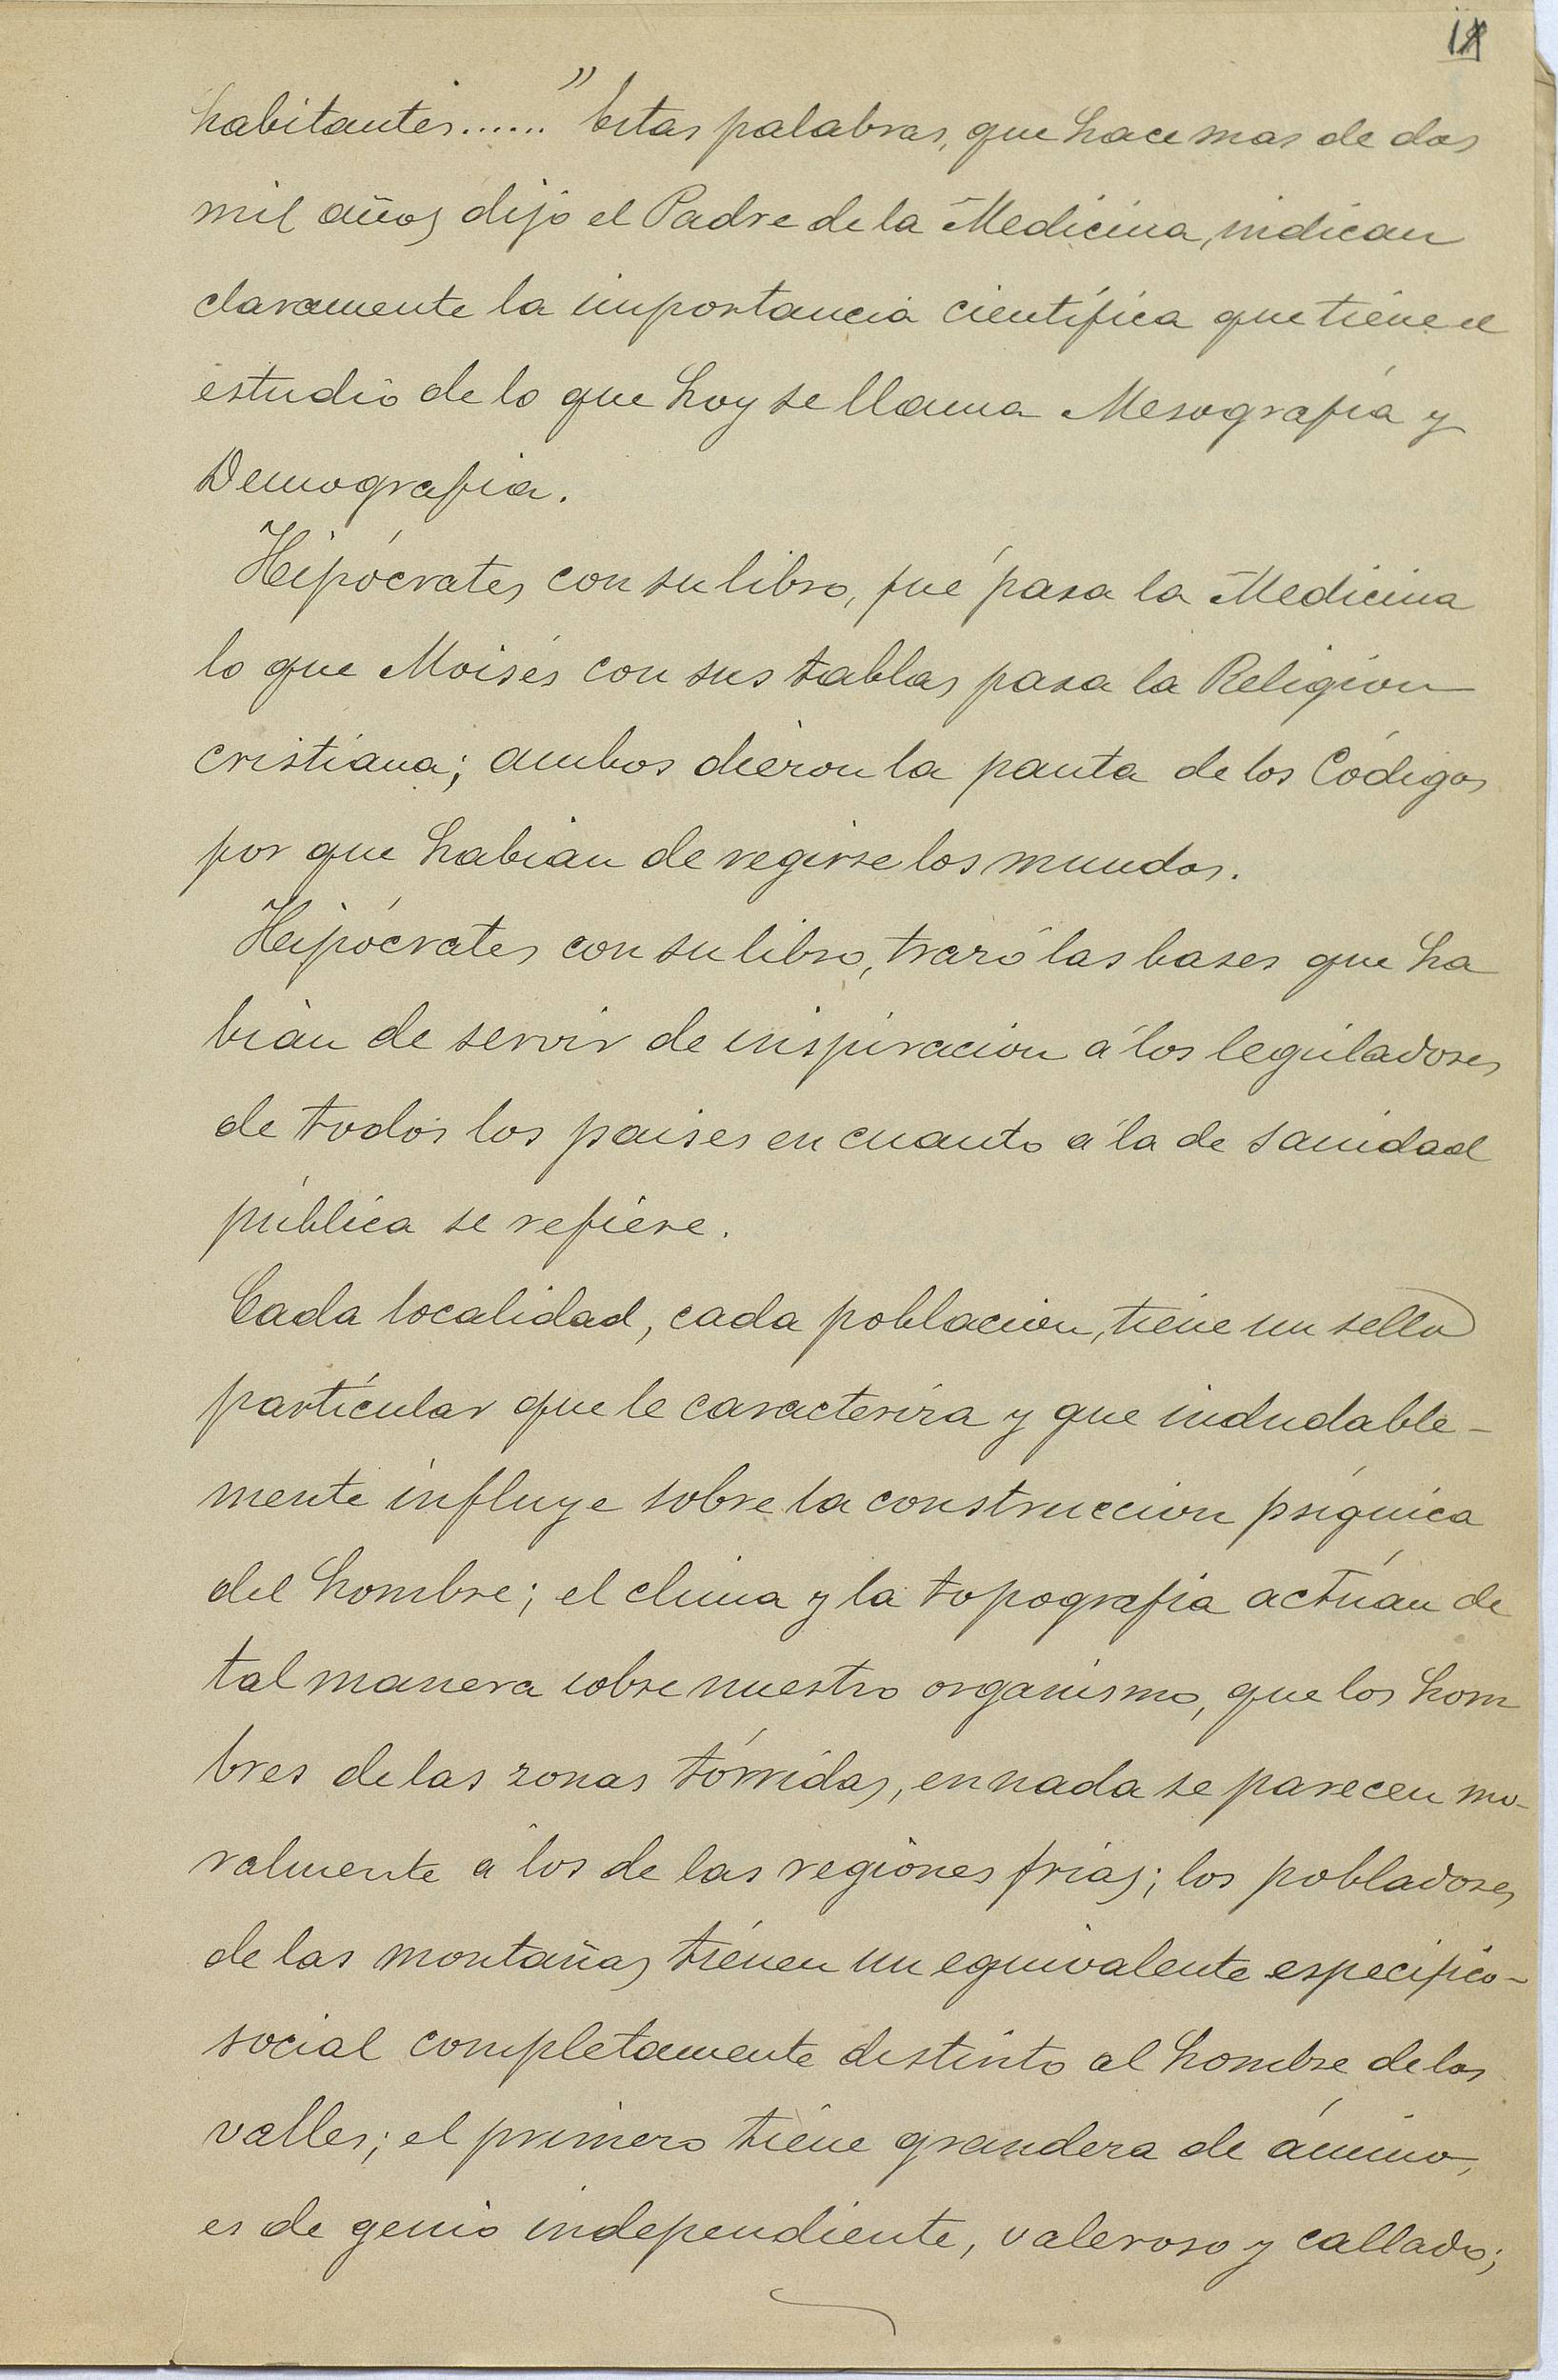 habitantes......" Estas palabras, que hace mas de dos
mil años dijo el Padre de la Medicina, indican
claramente la importancia científica que tiene el
estudio de lo que hoy se llama Mesografía y
Demografia.
Hipócrates con su libro, fué para la Medicina
lo que Moisés con sus tablas para la Religion
cristiana; ambos dieron la pauta de los Códigos
por que habian de regirse los mundos.
Hipócrates con su libro, trazó las bases que ha
bian de servir de inspiracion á los legisladores
de todos los paises en cuanto á la de sanidad
pública se refiere.
Cada localidad, cada poblacion, tiene un sello
particular que le caracteriza y que indudable-
mente influye sobre la construccion psíquica
del hombre; el clima y la topografia actúan de
tal manera sobre nuestro organismo, que los hom
bres de las zonas tórridas, en nada se parecen mo-
ralmente á los de las regiones frias; los pobladores
de las montañas tienen un equivalente especifico-
social completamente distinto al hombre de los
valles; el primero tiene grandeza de ánimo,
es de genio independiente, valeroso y callado;